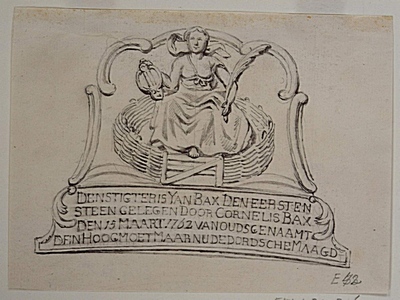 DENSTIGTER IS VAN BAX DEN EERSTEN
STEEN GELEGEN DOOR CORNELIS BAX
DEN 15 MAART 1762 VAN OUDS GENAAMT
DEIN HOOGMOET MAAR NU DE DORDSCHE MAAGD
E 42